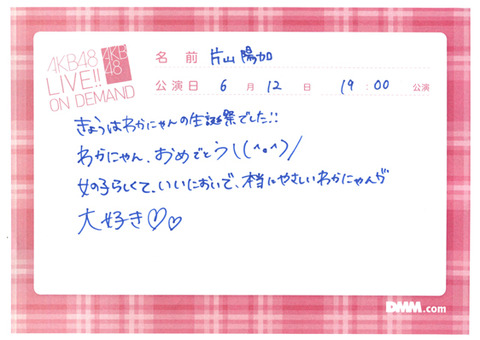 AKB48
LIVE!!
ON DEMAND
AKB
48
名 前 片山陽加
公演日 6 月 12 日 19:00 公演
きょうはわかにゃんの生誕祭でした!!
わかにゃん、おめでとう\(^o^)/
女の子らしくて、いいにおいで、本当にやさしいわかにゃんが
大好き♡♡
DMM.com